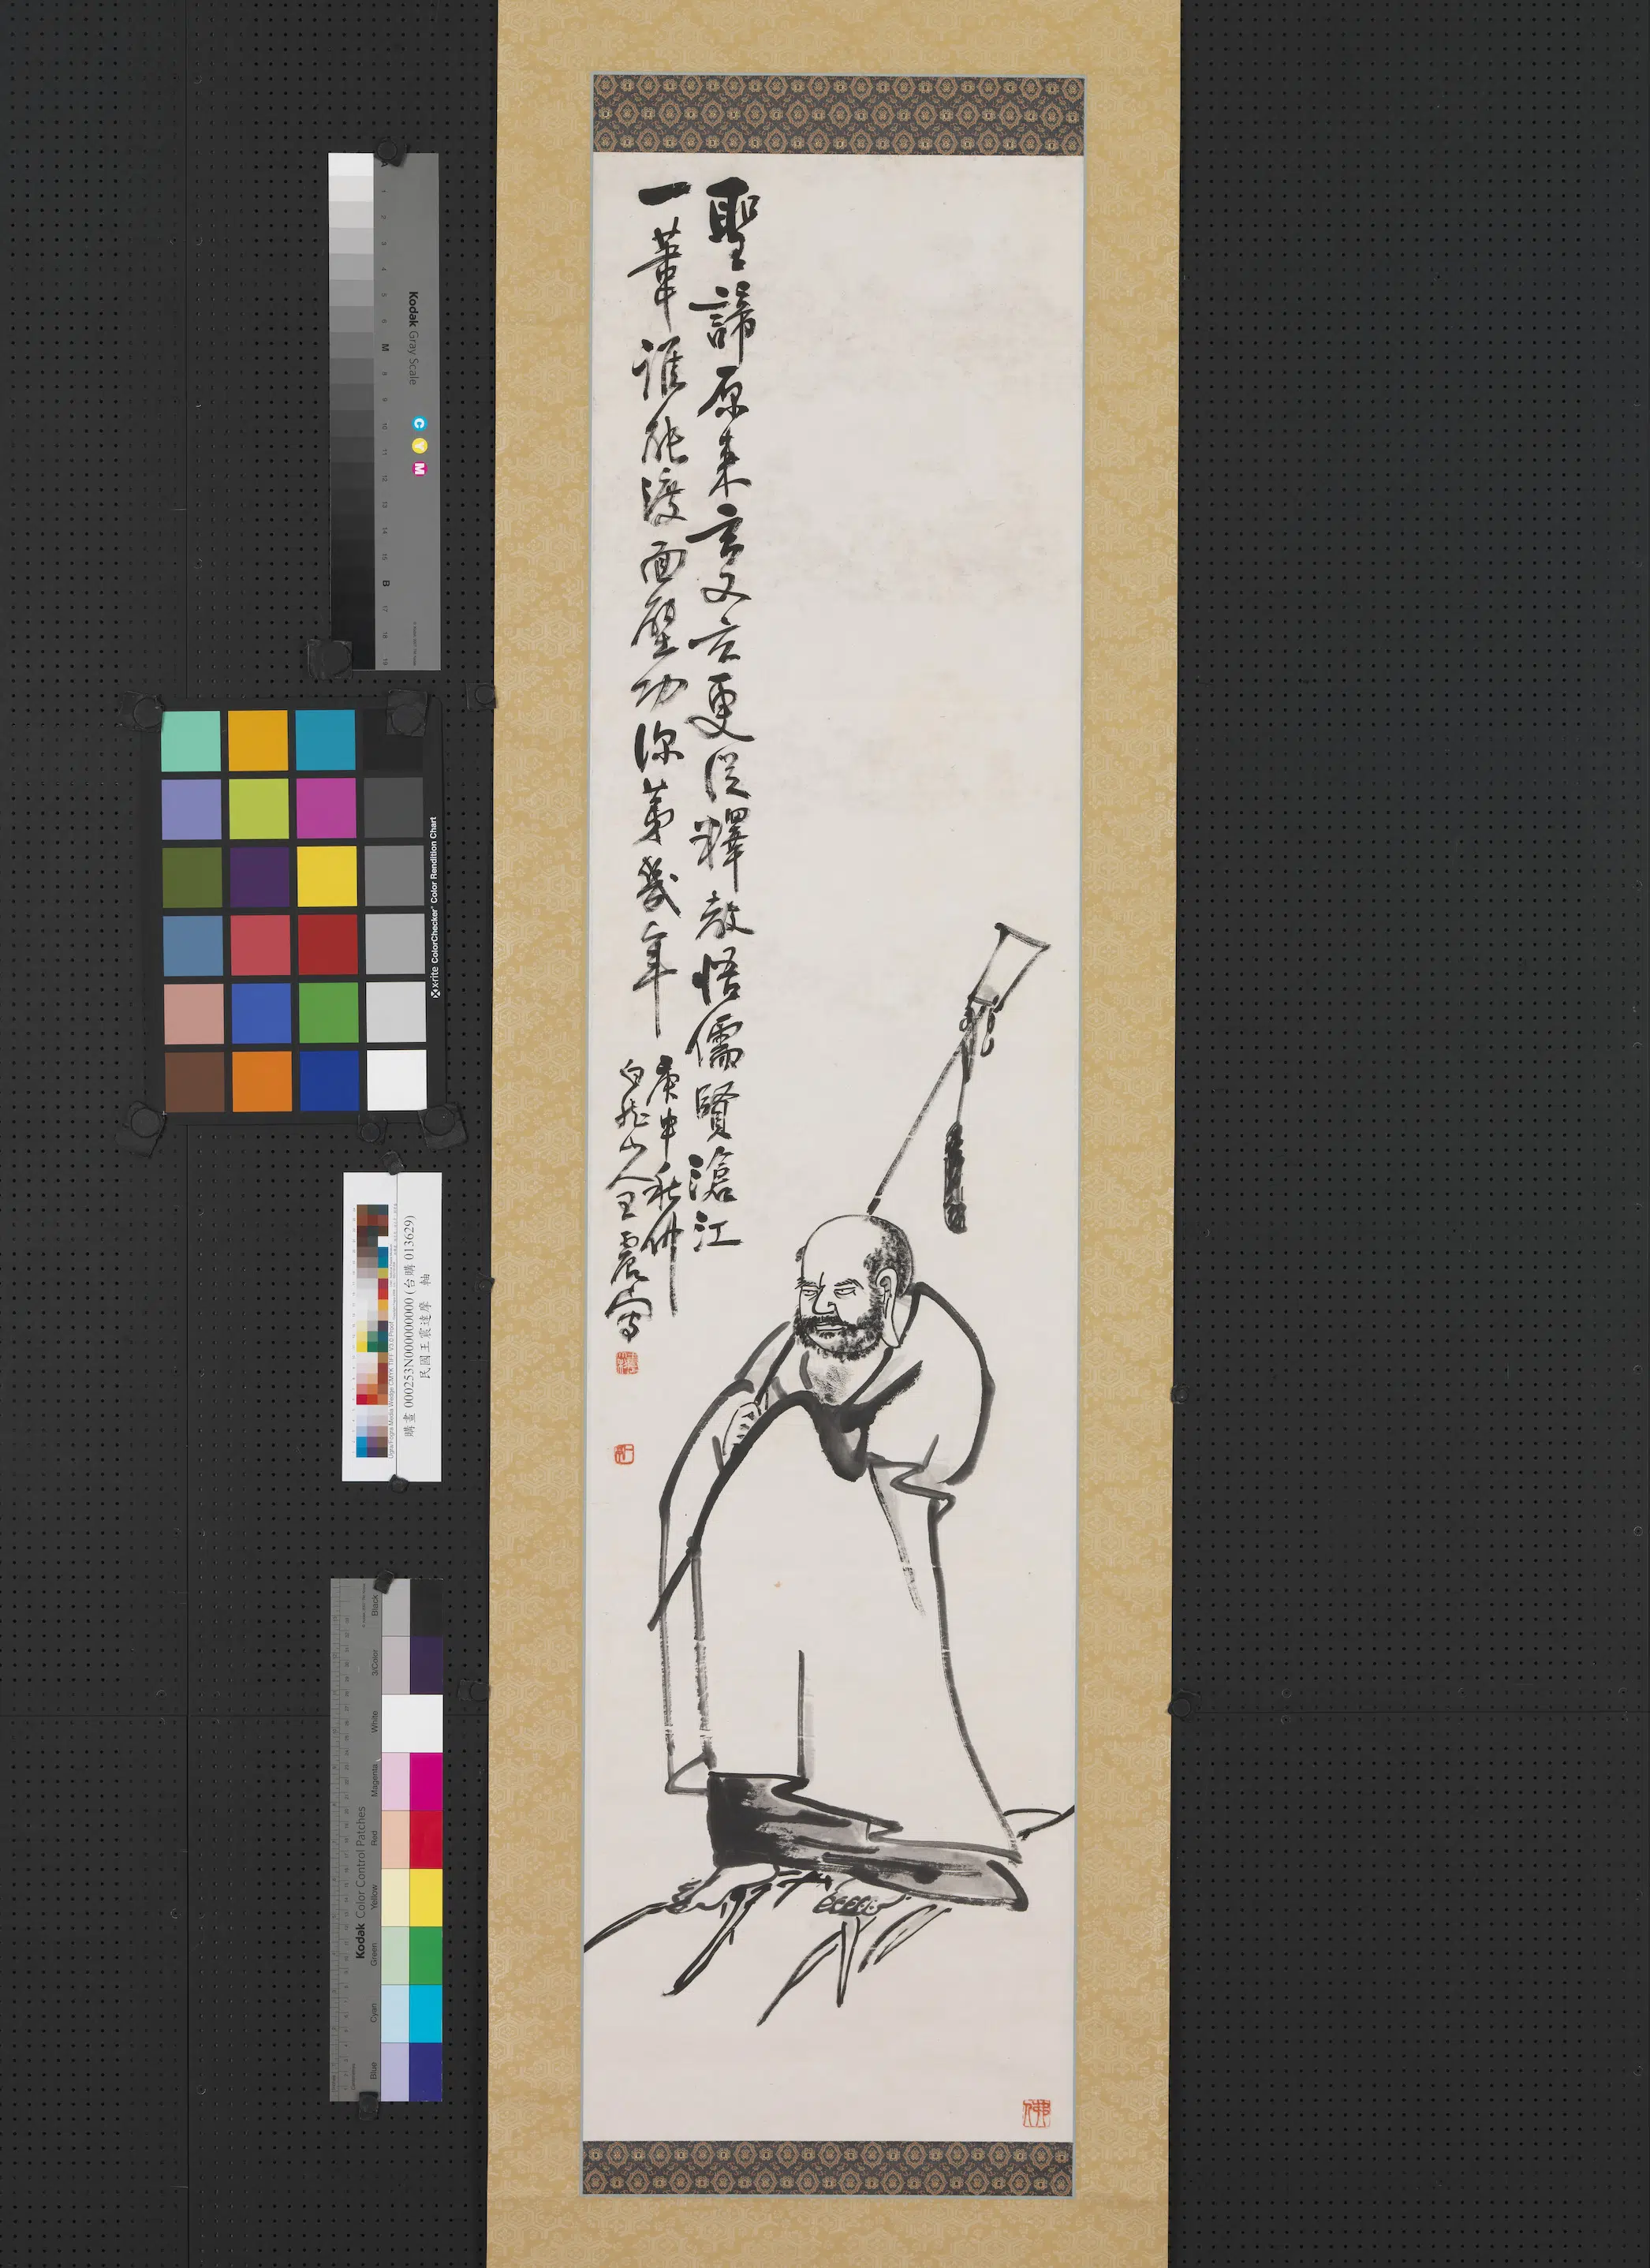 聖諦原來玄又玄更從釋教悟儒賢滄江
一葦誰能渡面壁功深第幾年
庚申秋仲
白龍山人王震寫
Kodak Gray Scale
C Y M
A 1 2 3 4 5 6 M 8 9 10 11 12 13 14 15 B 17 18 19
x-rite ColorChecker Color Rendition Chart
購畫 000253N000000000 (台購 013629)
民國王震達摩 軸
Kodak Color Control Patches
Blue Cyan Green Yellow Red Magenta White 3/Color Black